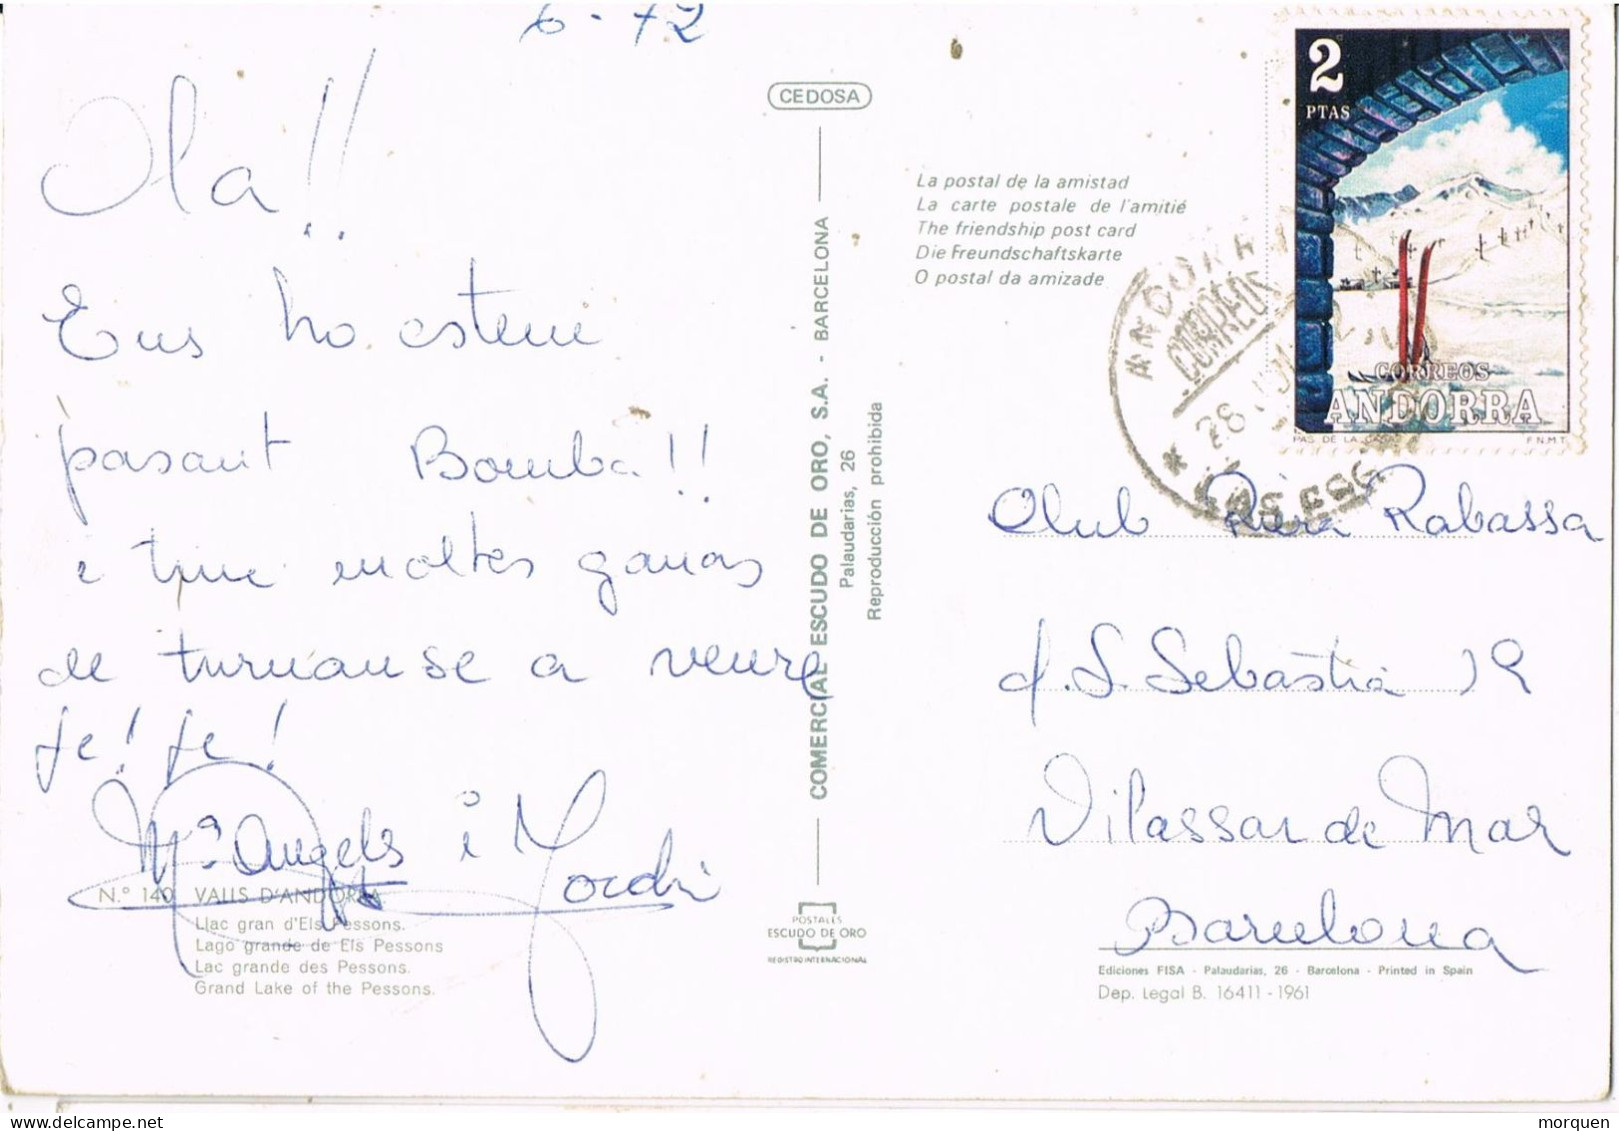 6-72
Ola!!
Ens ho estem
pasant Bomba!!
i tinc moltes ganas
de turnanse a veure
je! je!
Mª Angels i Jordi
N.º 140 VALLS D'ANDORRA
Llac gran d'Els Pessons.
Lago grande de Els Pessons
Lac grande des Pessons.
Grand Lake of the Pessons.
CEDOSA
COMERCIAL ESCUDO DE ORO, S.A. - BARCELONA
Palaudarias, 26
Reproducción prohibida
POSTALES
ESCUDO DE ORO
REGISTRO INTERNACIONAL
La postal de la amistad
La carte postale de l'amitié
The friendship post card
Die Freundschaftskarte
O postal da amizade
2
PTAS
CORREOS
ANDORRA
PAS DE LA CASA
F.N.M.T.
ANDORRA
CORREOS
28
Club Riera Rabassa
d. S. Sebastia 19
Vilassar de Mar
Barcelona
Ediciones FISA - Palaudarias, 26 - Barcelona - Printed in Spain
Dep. Legal B. 16411 - 1961
morquen